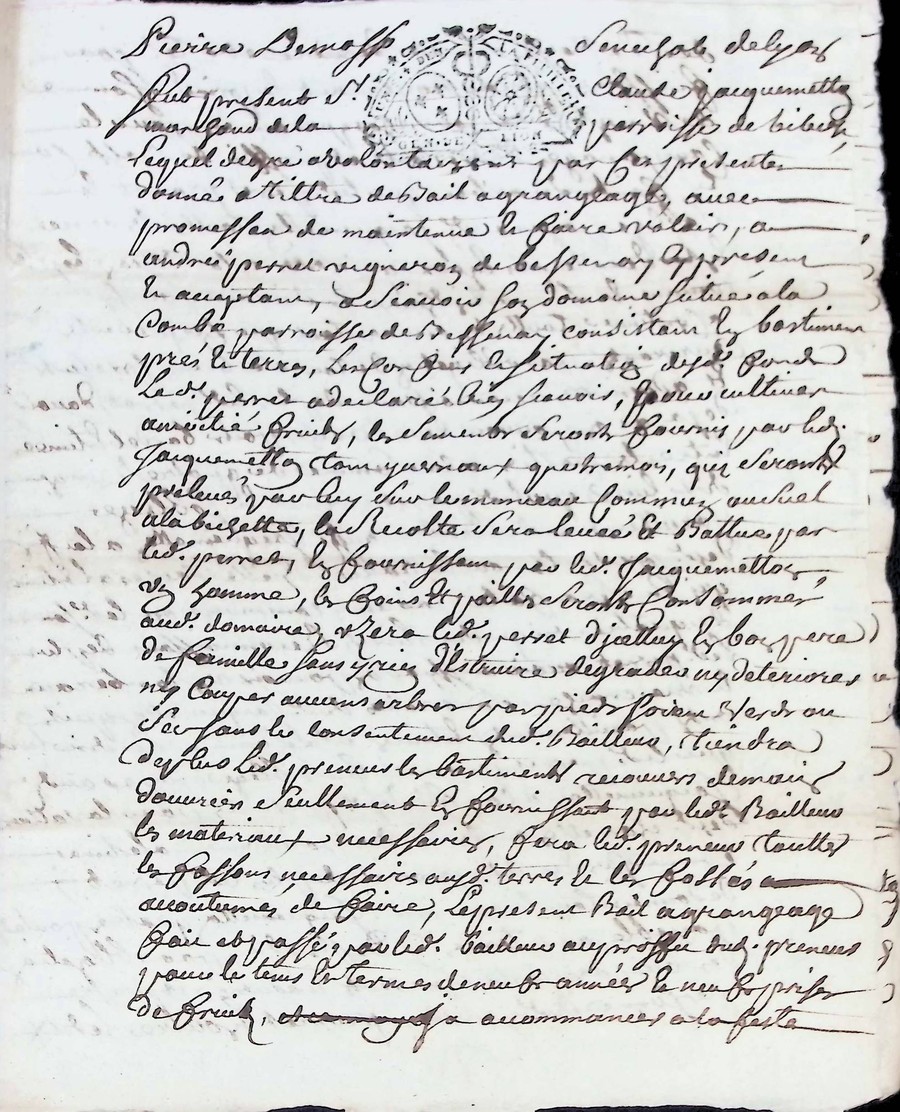 Pierre Demasso Senechal de lyon
Fut present Sr. Claude Jacquemetton
marchand de la parroisse de bibost,
Lequel de gre a volontairement par ces presentes
donné a tiltre de Bail a grangeage, avec
promesse de maintenue et faire valoir, a
andré perret vigneron de bessenay cy present
et acceptant, a scavoir son domaine situé a la
Combe parroisse de Bessenay consistant en bastiment
prés et terres, les confins et situation desd. fonds
Led. perret a declaré bien scavoir, pour cultiver
a moitié fruits, les semences seront fournis par led.
Jacquemetton tant yvernaux que tremois, qui seront
prelevés par luy sur le monceau commun au suel
a la, la Recolte sera levée Et Battue par
led. perret, en fournissant par led. Jacquemetton
un homme, les foins Et pailles seront consommés
aud. domaine, uzera led. perret d'jcelluy en bon pere
de famille sans y rien d'Estruire degrader ny deteriorer
ny couper aucuns arbres par pied soient verd ou
sec sans le consentement dud. Bailleur, tiendra
de plus led. preneur les bastiments recouvers de main
d'ouvriés seullement en fournissant par led. Bailleur
les materiaux necessaires, fera led. preneur touttes
les fassons necessaires ausd. terres et les fossés
acoutumés de faire, Le present Bail a grangeage
fait et passé par led. bailleur au proffit dud. preneur
pour le tems et termes de neuf années et neuf prises
de fruits, a commancer a la feste